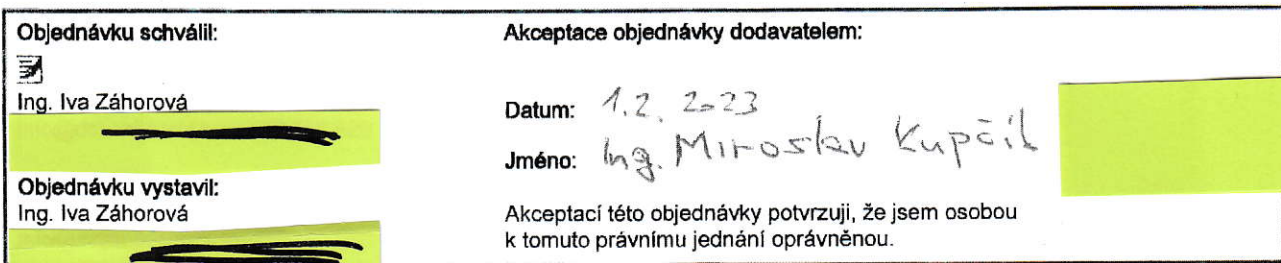 Objednávku schválil:
Ing. Iva Záhorová
Objednávku vystavil:
Ing. Iva Záhorová
Akceptace objednávky dodavatelem:
Datum: 1.2. 2023
Jméno: Ing. Miroslav Kupčík
Akceptací této objednávky potvrzuji, že jsem osobou
k tomuto právnímu jednání oprávněnou.